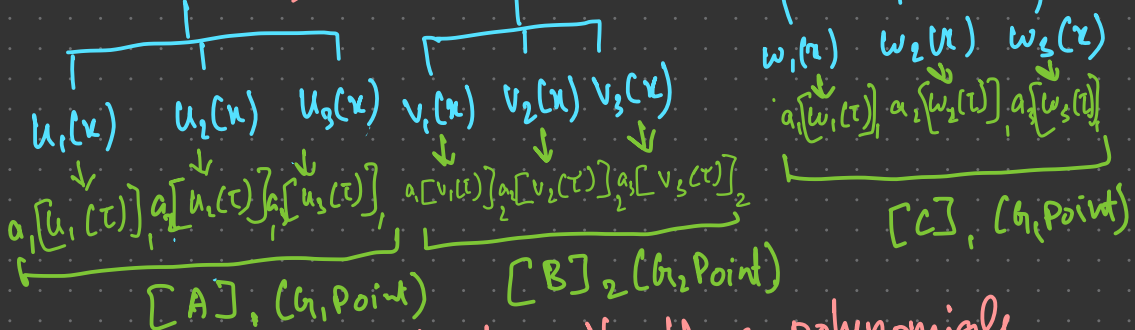 u₁(x) u₂(x) u₃(x) v₁(x) v₂(x) v₃(x) w₁(x) w₂(x) w₃(x)
a₁[u₁(τ)]₁ a₂[u₂(τ)]₁ a₃[u₃(τ)]₁ a₁[v₁(τ)]₂ a₂[v₂(τ)]₂ a₃[v₃(τ)]₂ a₁[w₁(τ)]₁ a₂[w₂(τ)]₁ a₃[w₃(τ)]₁
[A]₁ (G₁Point) [B]₂ (G₂Point) [C]₁ (G₁Point)
polynomials